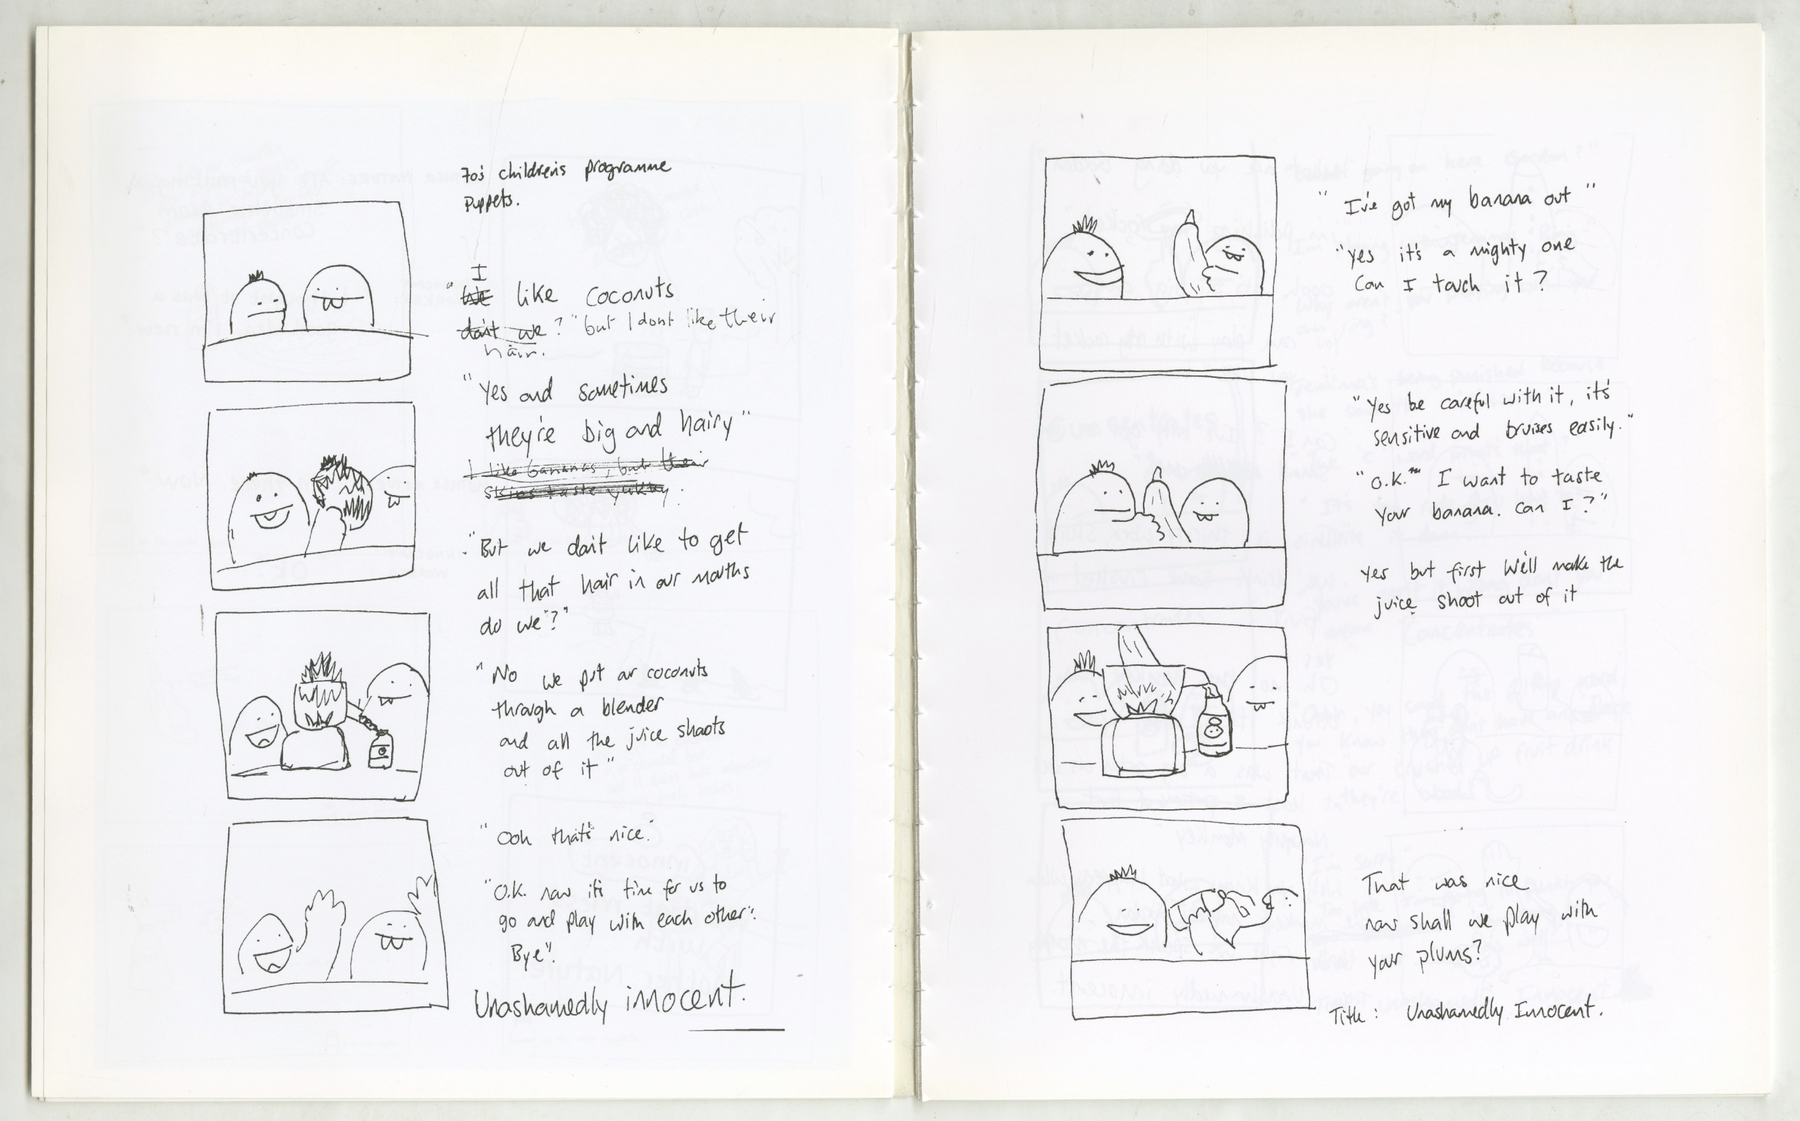 70's children's programme
Puppets.
I
"We like coconuts
don't we?" "but I dont like their
hair.
"Yes and sometimes
they're big and hairy"
I like bananas, but their
skins taste yukky.
"But we don't like to get
all that hair in our mouths
do we"?"
"No we put our coconuts
through a blender
and all the juice shoots
out of it"
"Ooh that's nice."
"O.K. now it's time for us to
go and play with each other".
Bye".
Unashamedly innocent.
"I've got my banana out"
"Yes it's a mighty one
Can I touch it?
"Yes be careful with it, it's
sensitive and bruises easily."
"O.K." I want to taste
your banana. Can I?"
Yes but first we'll make the
juice shoot out of it
That was nice
now shall we play with
your plums?
Title: Unashamedly Innocent.